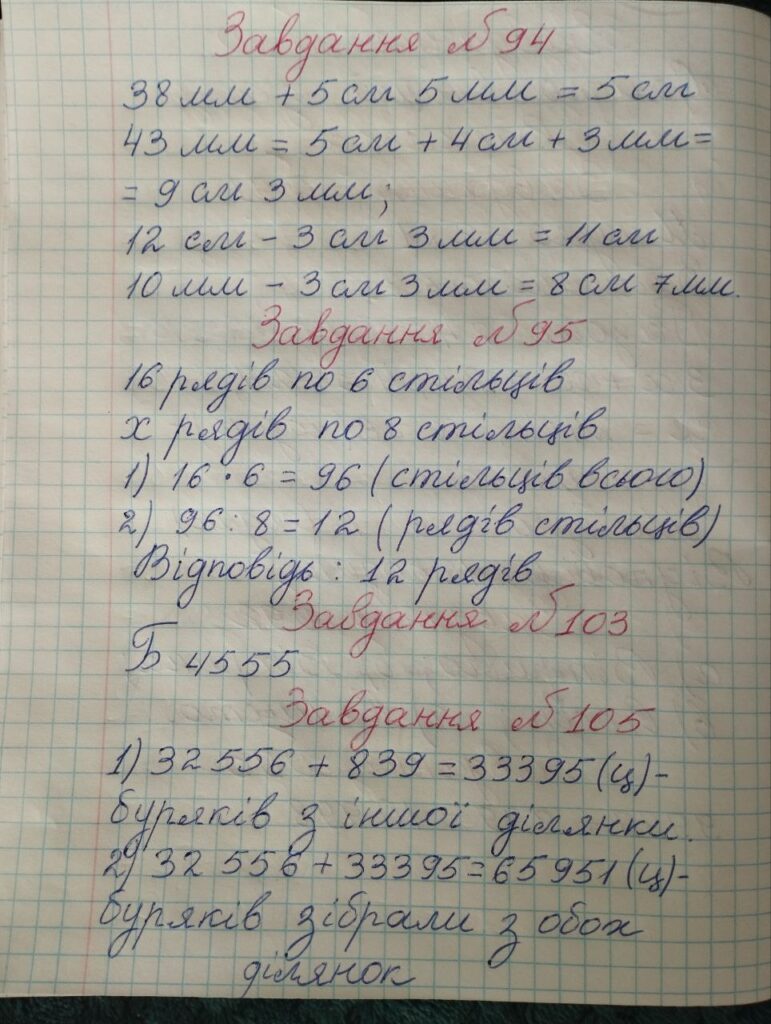 Завдання №94
38 мм + 5 см 5 мм = 5 см
43 мм = 5 см + 4 см + 3 мм =
= 9 см 3 мм;
12 см - 3 см 3 мм = 11 см
10 мм - 3 см 3 мм = 8 см 7 мм.
Завдання №95
16 рядів по 6 стільців
х рядів по 8 стільців
1) 16 · 6 = 96 (стільців всього)
2) 96 : 8 = 12 (рядів стільців)
Відповідь : 12 рядів
Завдання №103
Б 4555
Завдання №105
1) 32 556 + 839 = 33395 (ц)-
буряків з іншої ділянки.
2) 32 556 + 33395 = 65951 (ц)-
буряків зібрали з обох
ділянок